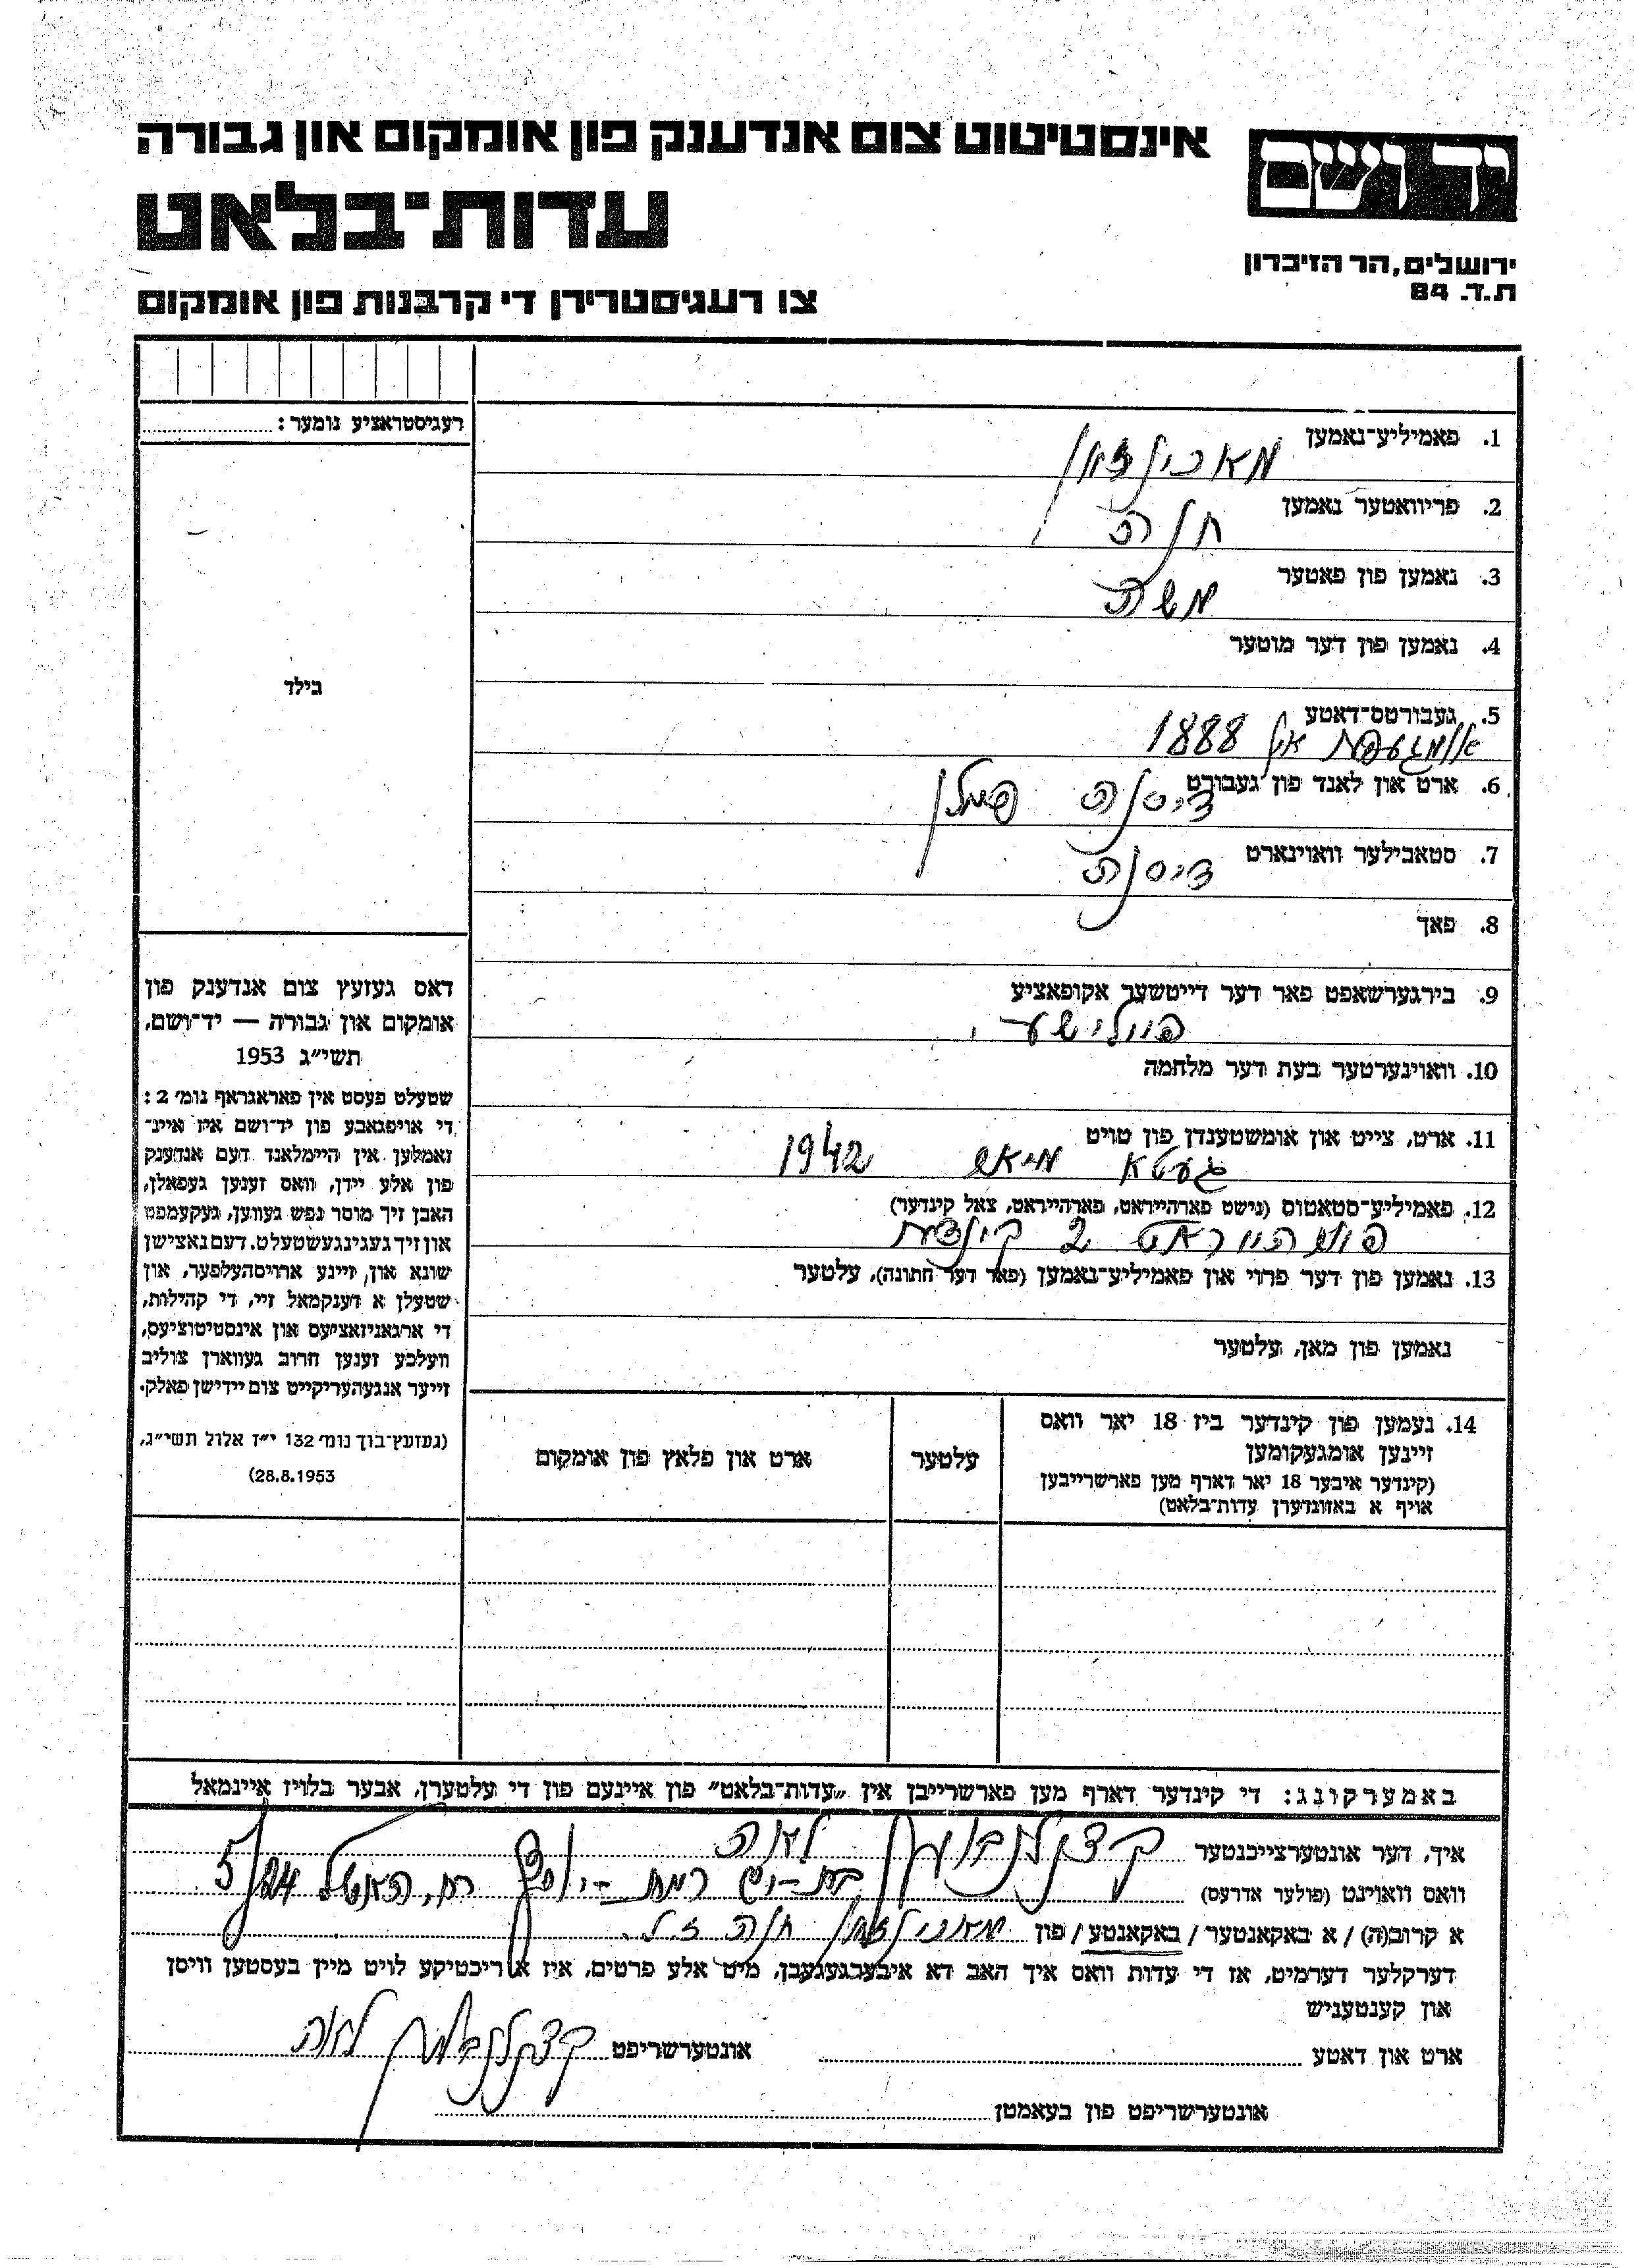 יד ושם
אינסטיטוט צום אנדענק פון אומקום און גבורה
עדות־בלאט
ירושלים, הר הזיכרון
ת.ד. 84
צו רעגיסטרירן די קרבנות פון אומקום
רעגיסטראציע נומער :
בילד
1. פאמיליע־נאמען
2. פריוואטער נאמען
חנה
3. נאמען פון פאטער
משה
4. נאמען פון דער מוטער
5. געבורטס־דאטע
1888
6. ארט און לאנד פון געבורט
דיסנה פוילן
7. סטאבילער וואוינארט
דיסנה
8. פאך
9. בירגערשאפט פאר דער דייטשער אקופאציע
פוילישע
10. וואוינערטער בעת דער מלחמה
11. ארט, צייט און אומשטענדן פון טויט
געטא 1942
12. פאמיליע־סטאטוס (נישט פארהייראט, פארהייראט, צאל קינדער)
2 קינדער
13. נאמען פון דער פרוי און פאמיליע־נאמען (פאר דער חתונה), עלטער
נאמען פון מאן, עלטער
דאס געזעץ צום אנדענק פון
אומקום און גבורה — יד־ושם,
תשי״ג 1953
שטעלט פעסט אין פאראגראף נומ׳ 2 :
די אויפגאבע פון יד־ושם איז איינ־
זאמלען אין היימלאנד דעם אנדענק
פון אלע יידן, וואס זענען געפאלן,
האבן זיך מוסר נפש געווען, געקעמפט
און זיך געגינגעשטעלט. דעם נאצישן
שונא און, זיינע ארויסהעלפער, און
שטעלן א דענקמאל זיי, די קהילות,
די ארגאניזאציעס און אינסטיטוציעס,
וועלכע זענען חרוב געווארן צוליב
זייער אנגעהעריקייט צום יידישן פאלק.
(געזעץ־בוך נומ׳ 132 י״ז אלול תשי״ג,
28.8.1953)
14. נעמען פון קינדער ביז 18 יאר וואס
זיינען אומגעקומען
(קינדער איבער 18 יאר דארף מען פארשרייבען
אויף א באזונדערן עדות־בלאט)
עלטער
ארט און פלאץ פון אומקום
באמערקונג: די קינדער דארף מען פארשרייבן אין „עדות־בלאט״ פון איינעם פון די עלטערן, אבער בלויז איינמאל
איך, דער אונטערצייכנטער לאה
וואס וואוינט (פולער אדרעס) בת-ים רמת-יוסף רח. 5/24
א קרוב(ה) / א באקאנטער / באקאנטע / פון חנה ז.ל.
דערקלער דערמיט, אז די עדות וואס איך האב דא איבערגעגעבן, מיט אלע פרטים, איז א ריכטיקע לויט מיין בעסטען וויסן
און קענטעניש
ארט און דאטע
אונטערשריפט לאה
אונטערשריפט פון בעאמטן